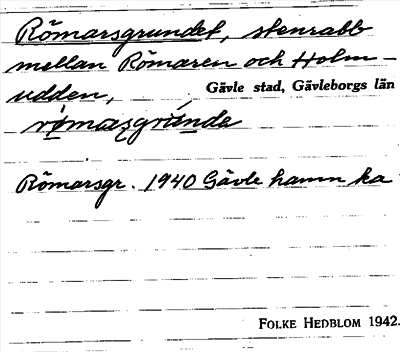 Römarsgrundet, stenrabb
mellan Römaren och Holm-
udden,
Gävle stad, Gävleborgs län
römarsgrúndə
Römarsgr. 1940 Gävle hamn ka
FOLKE HEDBLOM 1942.